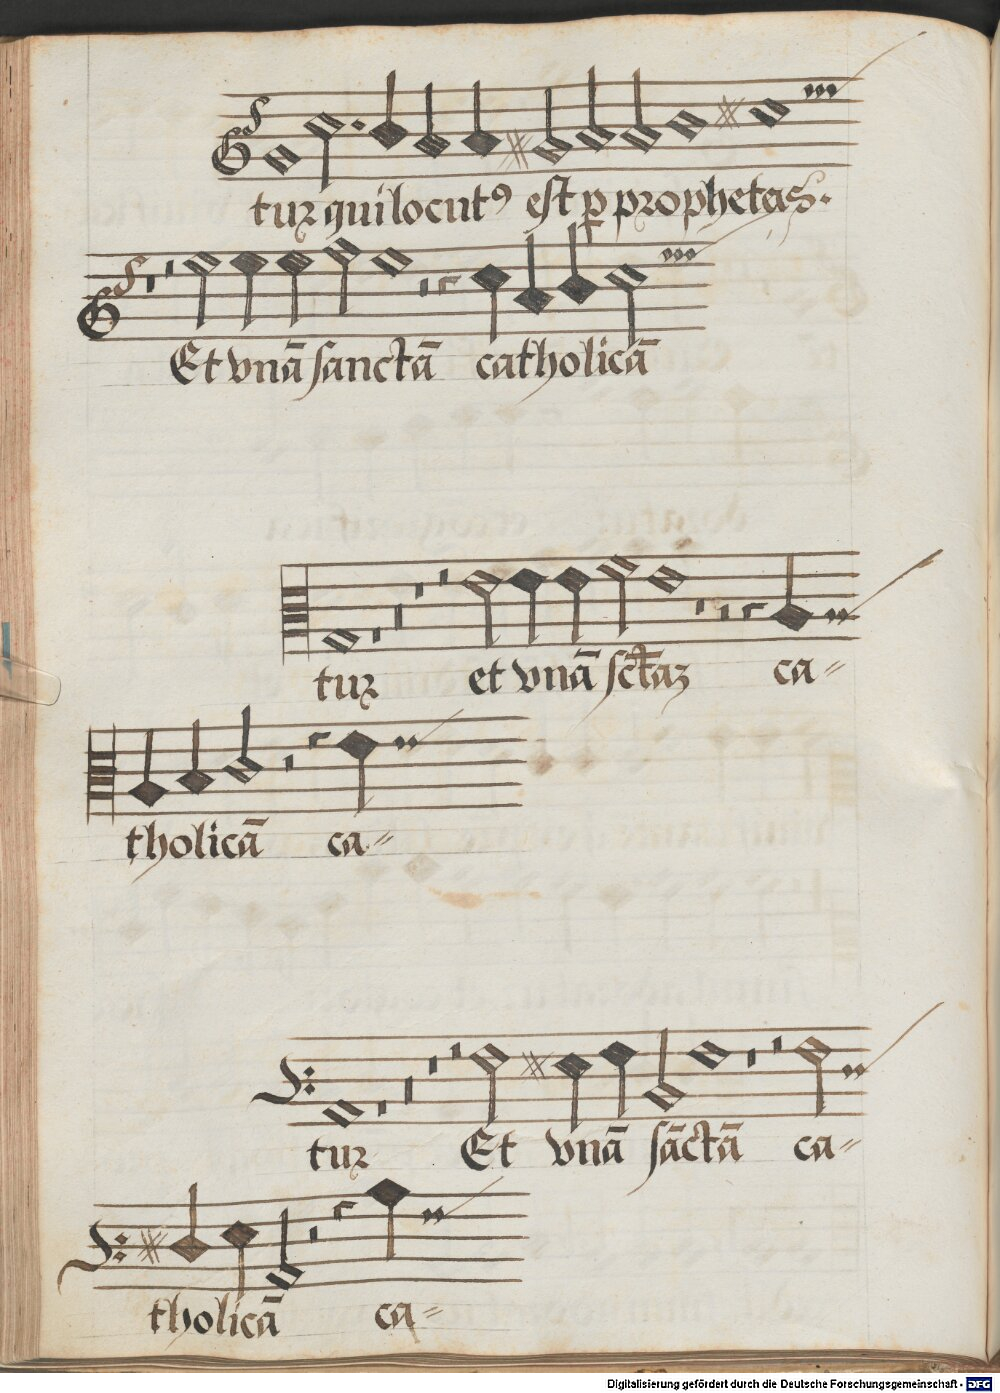 tur qui locutꝰ est ꝑ prophetas.
Et vnā sanctā catholicā
tur et vnā sctā̄z ca=
tholicā ca=
tur Et vnā sāctā ca=
tholicā ca=
Digitalisierung gefördert durch die Deutsche Forschungsgemeinschaft - DFG